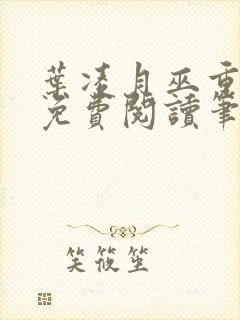 葉凌月巫重
免費閱讀筆
笑筱笙